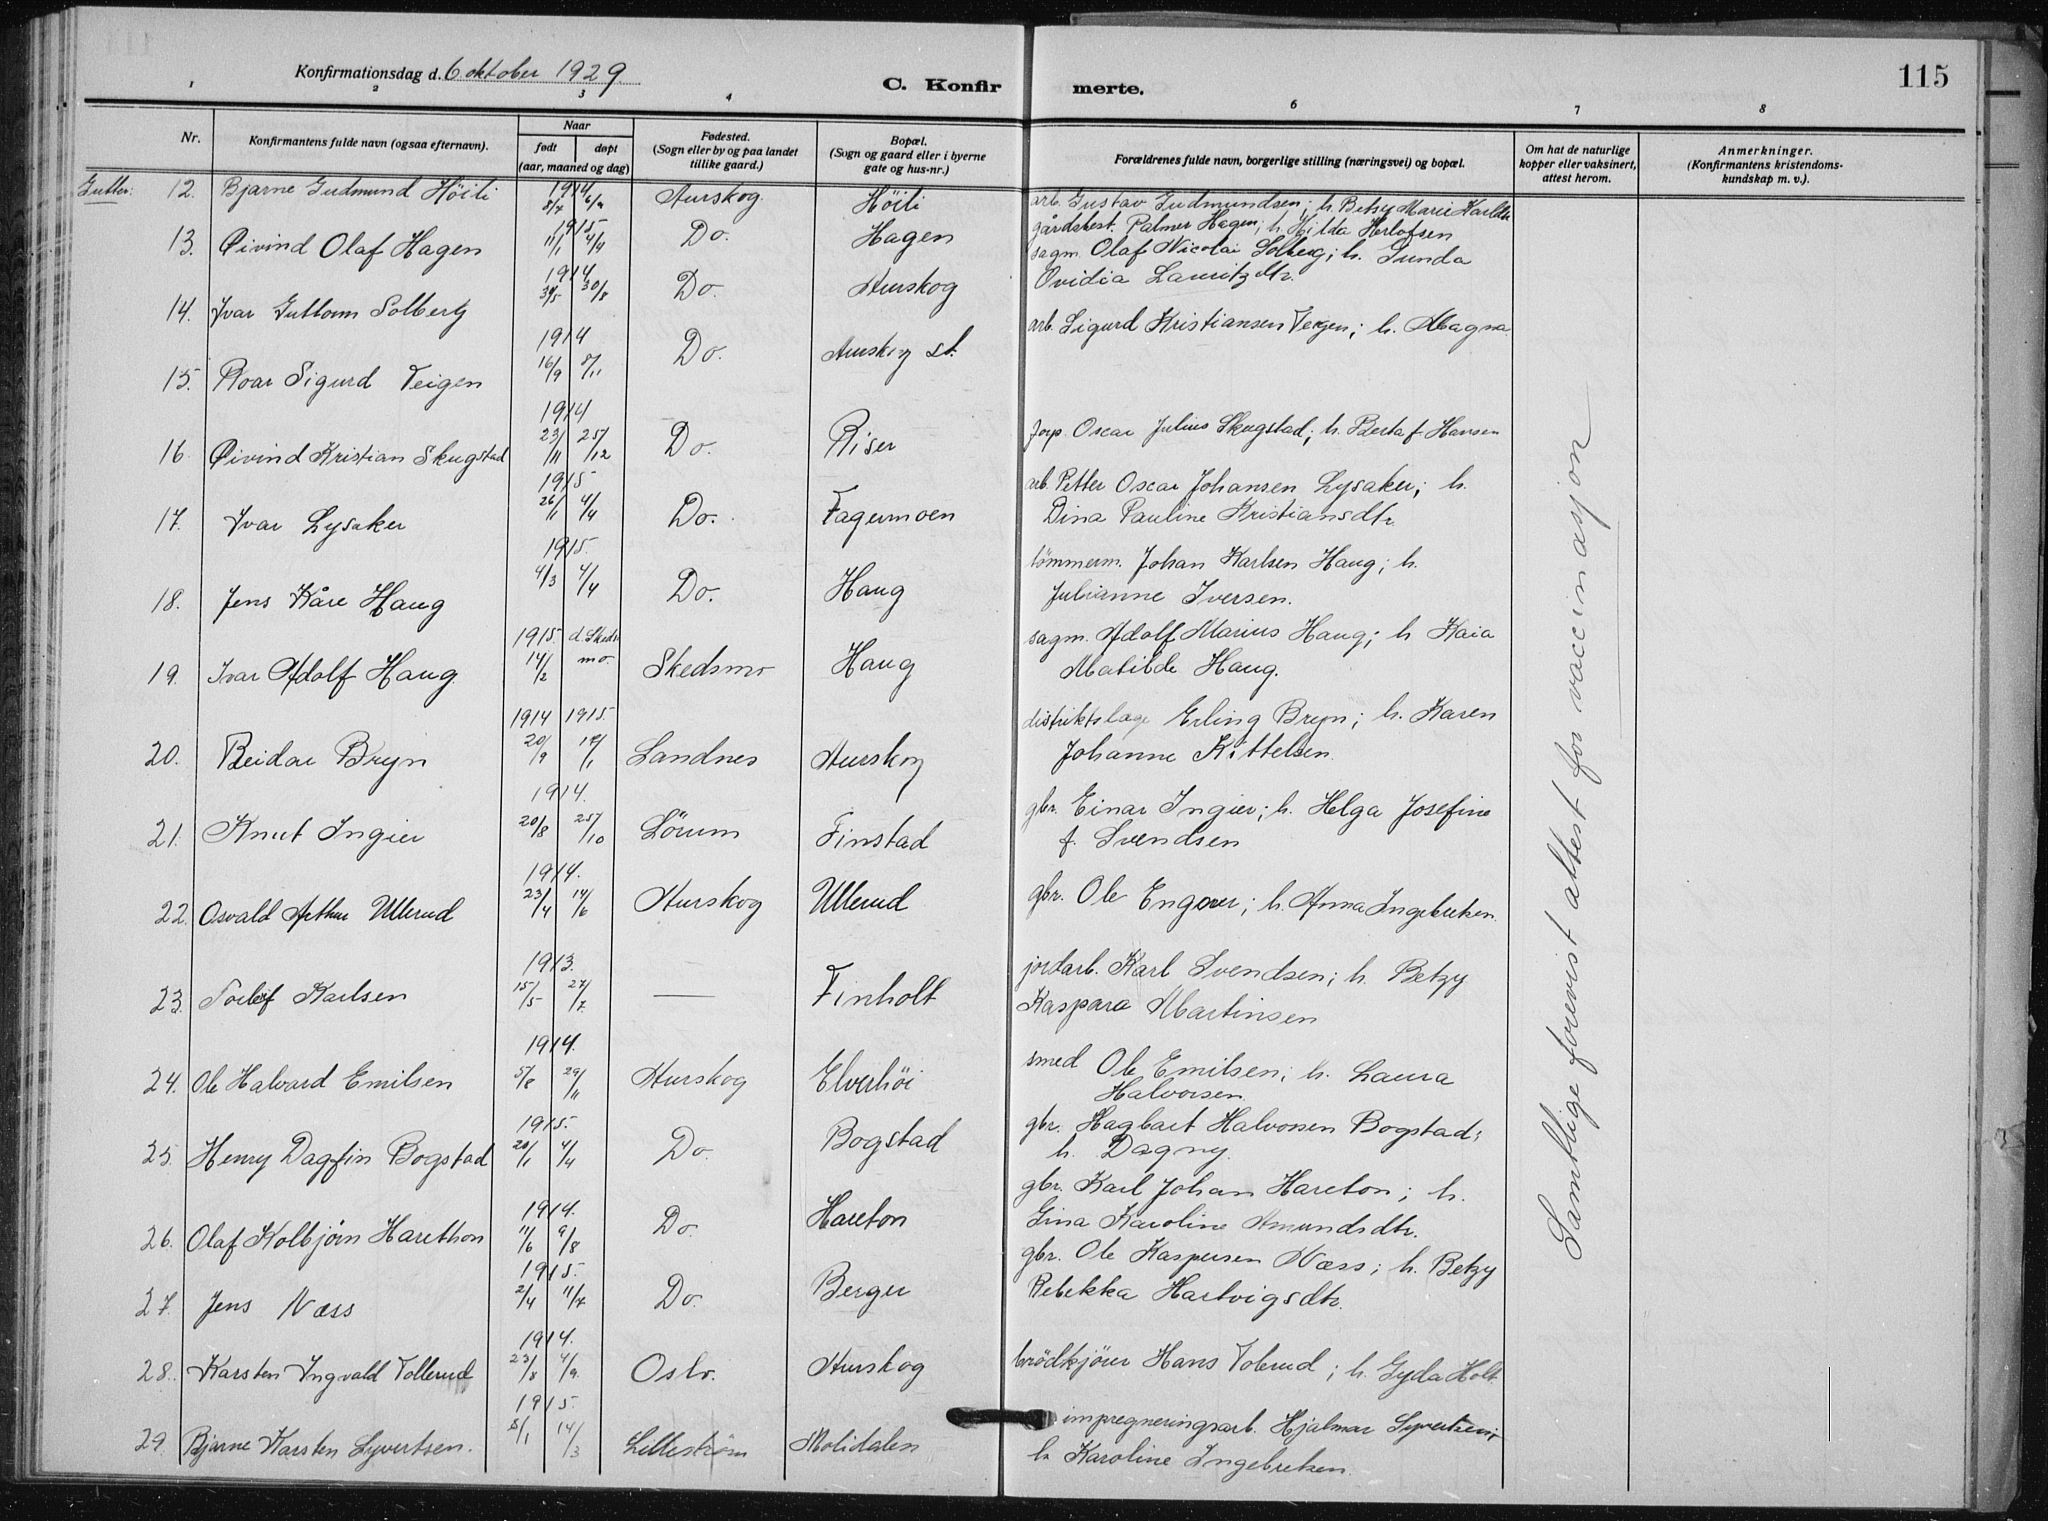 Konfirmationsdag d. 6 oktober 1929
C. Konfirmerte.
115
1 2 3 4 5 6 7 8
Nr.
Konfirmantens fulde navn (ogsaa efternavn).
Naar
født
døpt
(aar, maaned og dag)
Fødested.
(Sogn eller by og paa landet
tillike gaard.)
Bopæl.
(Sogn og gaard eller i byerne
gate og hus-nr.)
Forældrenes fulde navn, borgerlige stilling (næringsvei) og bopæl.
Om hat de naturlige
kopper eller vaksinert,
attest herom.
Anmerkninger.
(Konfirmantens kristendoms-
kundskap m. v.).
Gutter:
12. Bjarne Gudmund Høili 1914 8/7 6/9 Aurskog Høili arb. Gustav Gudmundsen; h. Betzy Marie Karlsdtr
13. Øivind Olaf Hagen 1915 11/1 4/4 Do. Hagen gårdsbest. Palmer Hagen; h. Hilda Herlofsen
14. Ivar Guttorm Solberg 1914 30/5 30/8 Do. Aurskog sagm. Olaf Nicolai Solberg; h. Gunda
Ovidia Lauritzdtr.
15. Roar Sigurd Teigen 1914 16/9 8/11 Do. Aurskog st. arb. Sigurd Kristiansen Teigen; h. Magna
16. Øivind Kristian Skugstad 1914 23/11 25/12 Do. Riser forp. Oscar Julius Skugstad; h. Berta f Hansen
17. Ivar Lysaker 1915 26/1 4/4 Do. Fagermoen arb. Petter Oscar Johansen Lysaker; h.
Dina Pauline Kristiansdtr
18. Jens Kåre Haug 1915. 4/3 4/4 Do. Haug tømmerm. Johan Karlsen Haug; h.
Julianne Iversen.
19. Ivar Adolf Haug 1915. 14/2 d. Skeds-
mo. Skedsmo Haug sagm. Adolf Marius Haug; h Kaia
Matilde Haug.
20. Reidar Bryn 1914 20/9 1915. 17/1 Sandnes Aurskog distriktslæge Erling Bryn; h. Karen
Johanne Kittelsen.
21. Knut Ingier 1914. 20/8 25/10 Sørum Finstad gbr. Einar Ingier; h. Helga Josefine
f. Svendsen
22. Osvald Arthur Ullerud 1914. 23/4 14/6 Aurskog Ullerud gbr. Ole Engmer; h. Anna Ingebretsen.
23. Torleif Karlsen 1913. 15/5 27/7 — Finholt jordarb. Karl Svendsen; h. Betzy
Kaspara Martinsen
24. Ole Halvard Emilsen 1914. 5/8 29/11 Aurskog Elverhöi smed Ole Emilsen; h. Laura
Halvorsen.
25. Henry Dagfin Bogstad 1915. 20/1 4/4 Do. Bogstad gbr. Hagbart Halvorsen Bogstad;
h. Dagny.
26. Olaf Kolbjørn Harethon 1914. 11/6 9/8 Do. Hareton gbr. Karl Johan Hareton; h.
Gina Karoline Amundsdtr.
27. Jens Næss 1915. 2/4 11/7 Do. Berger gbr. Ole Kaspersen Næss; h. Betzy
Rebekka Hartvigsdtr.
28. Karsten Ingvald Tollerud 1914. 23/8 4/9 Oslo. Aurskog brödkjörer Hans Tolerud; h. Gyda Holt.
29. Bjarne Karsten Syvertsen. 1915. 8/1 14/3 Lilleström Molidalen impregneringsarb. Hjalmar Syvertsen;
h. Karoline Ingebretsen.
Samtlige forevist attest for vaccinasjon